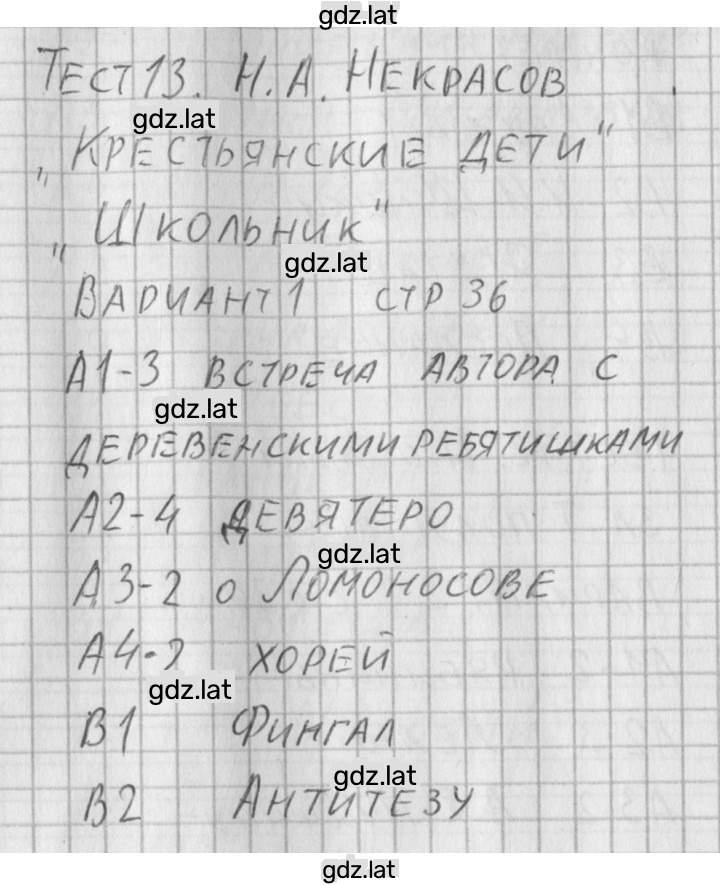 gdz.lat
Тест 13. Н.А. Некрасов
gdz.lat
„Крестьянские дети"
„Школьник"
gdz.lat
Вариант 1 стр 36
А1-3 встреча автора с
gdz.lat
деревенскими ребятишками
А2-4 девятеро
gdz.lat
А3-2 о Ломоносове
А4-2 хорей
gdz.lat
В1 Фингал
gdz.lat
В2 Антитезу
gdz.lat